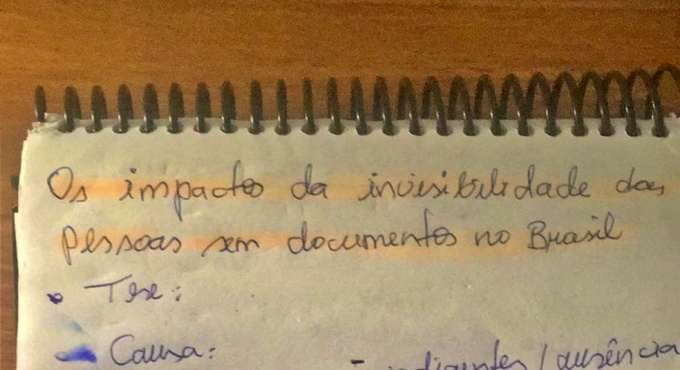 Os impactos da invisibilidade das
pessoas sem documentos no Brasil
• Tese:
Causa: - indigentes / ausência